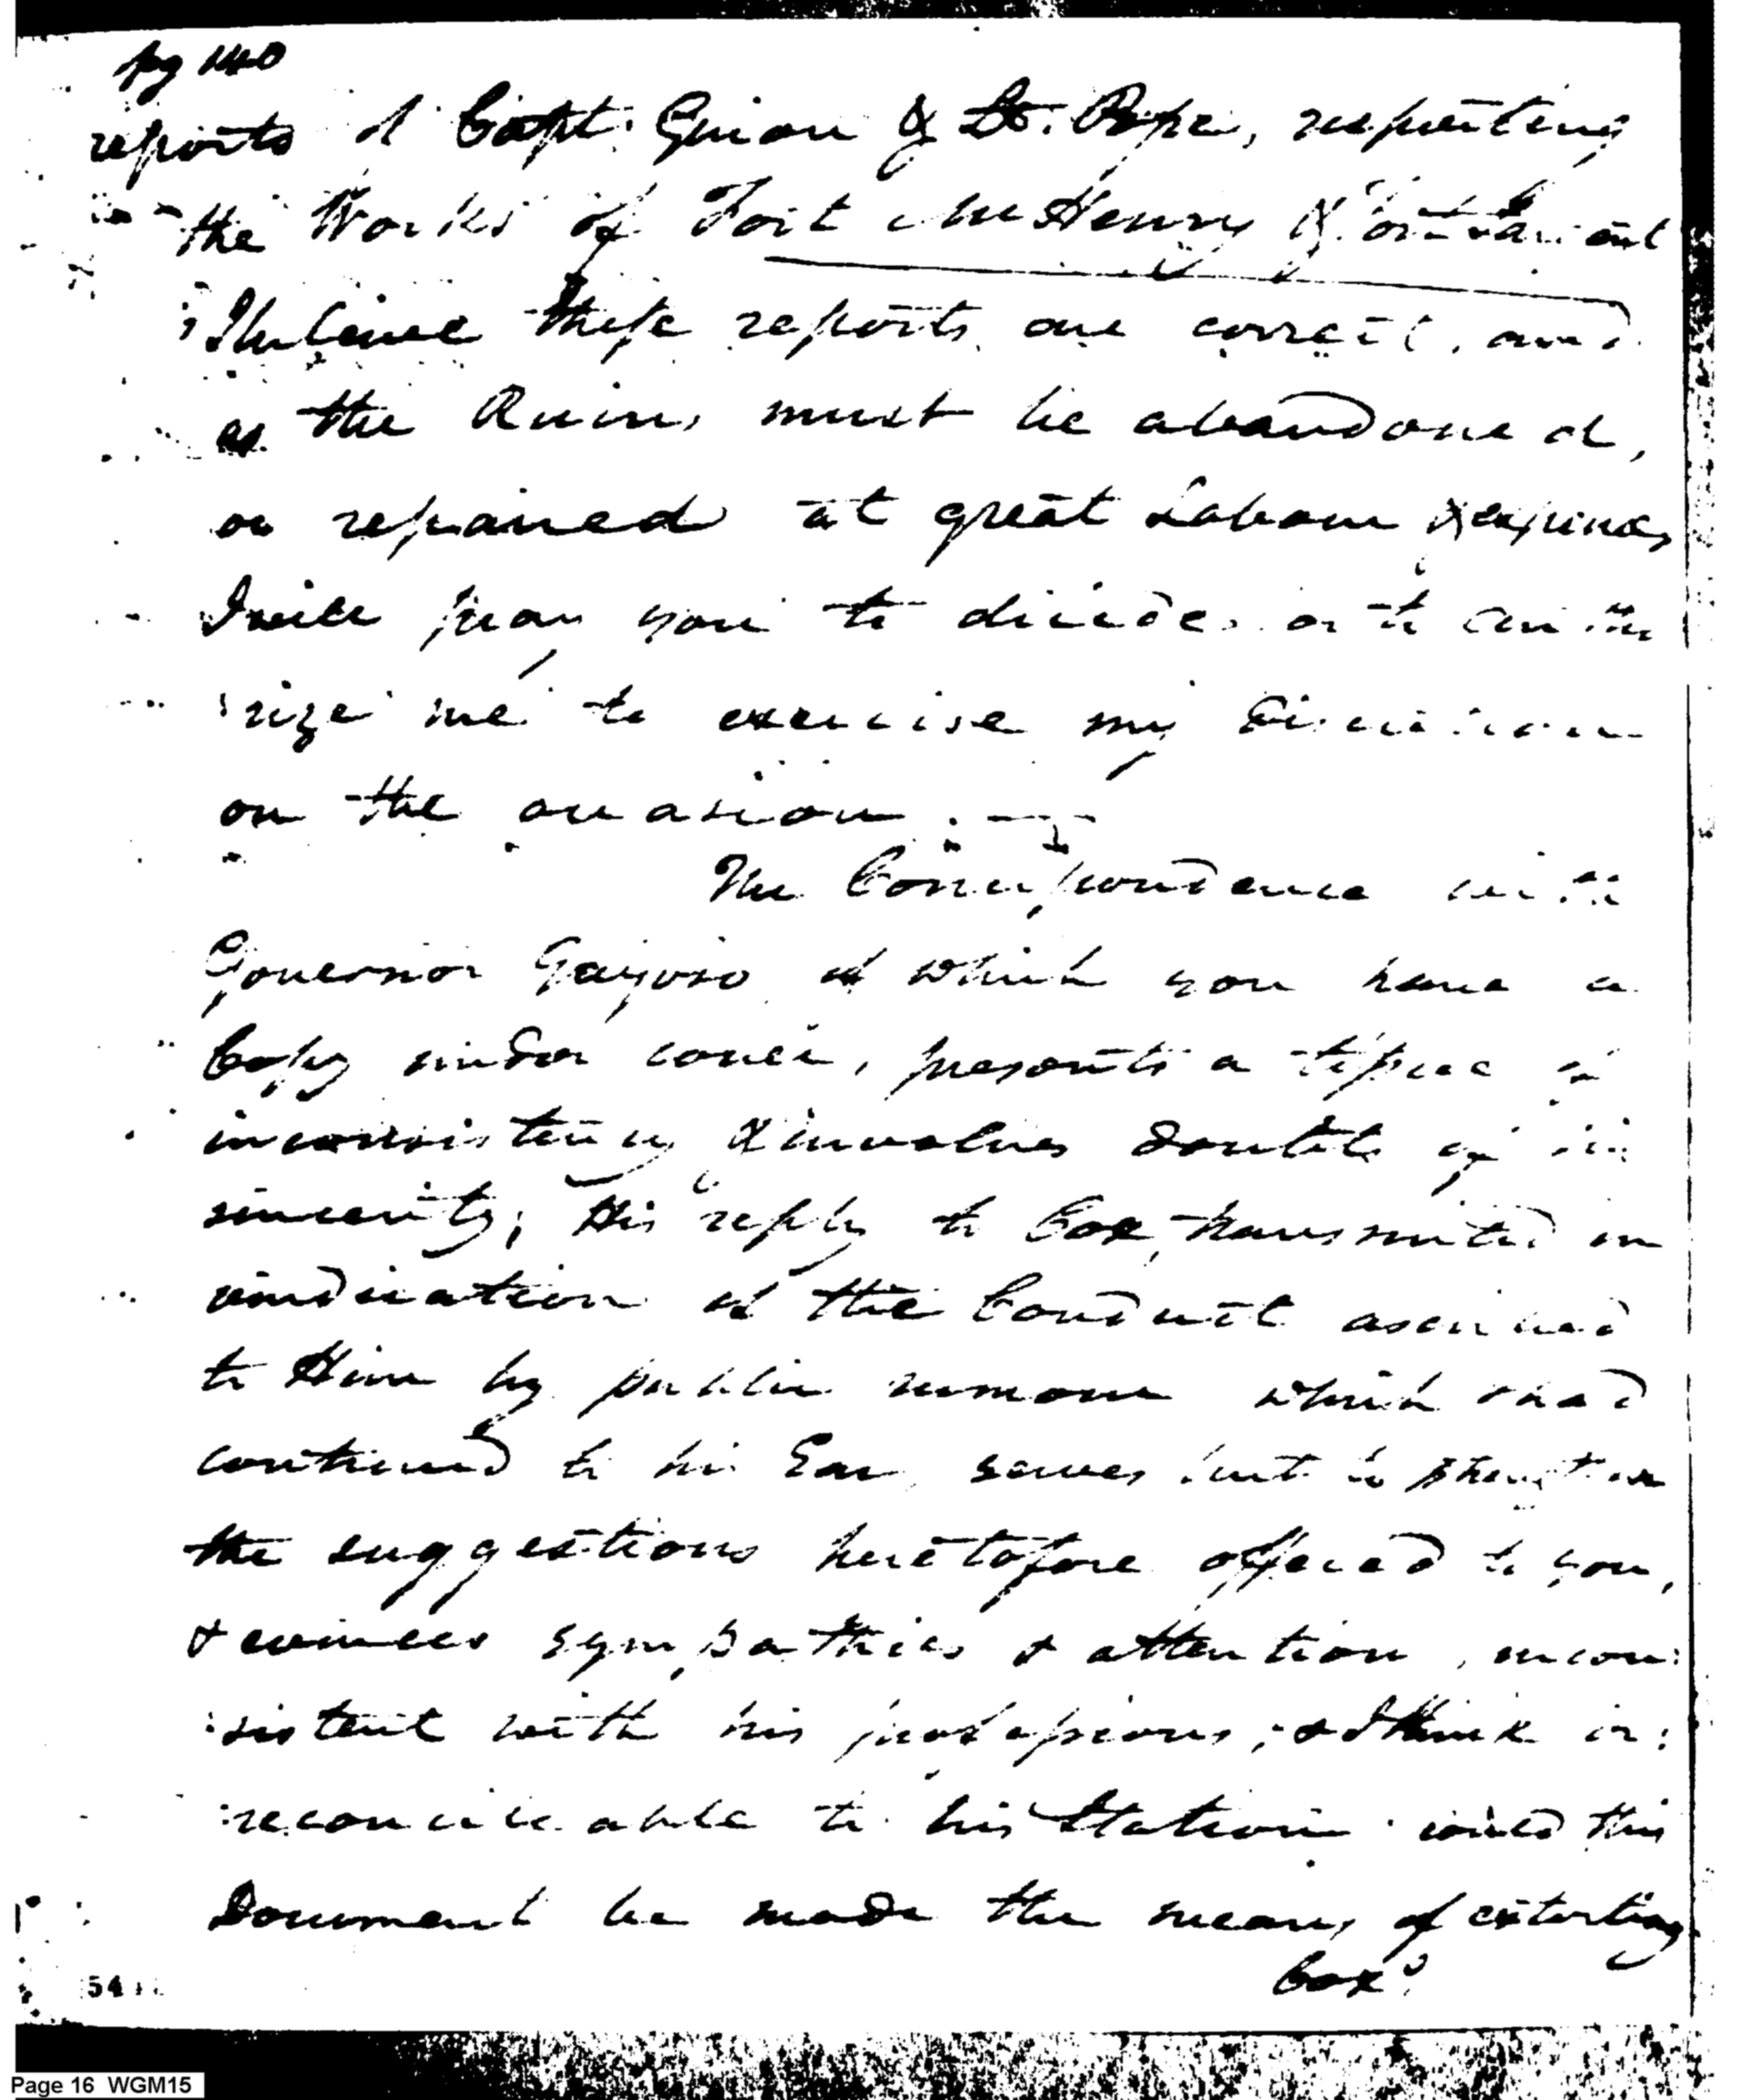 pg 140
reports of Capt. Guion & Lt. Pope, respecting
the Works of Fort McHenry &
I believe these reports are correct, and
as the Ruins must be abandoned,
or repaired at great Labour & expence,
I will pray you to decide, or to autho
:rize me to exercise my Discretion
on the occasion. —
The Correspondence with
Governor Gayoso of which you have a
Copy under cover, presents a tissue of
inconsistency & involves doubts of his
sincerity; His reply to Cox, transmitted in
vindication of the Conduct ascribed
to Him by public rumour which I had
contrived to his Ear, serves but to strengthen
the suggestions heretofore offered to you,
& evinces sympathies & attention, incon:
:sistent with his professions, & I think ir:
:reconcileable to his Station. could this
Document be made the means of extorting
Cox's
54
Page 16 WGM15